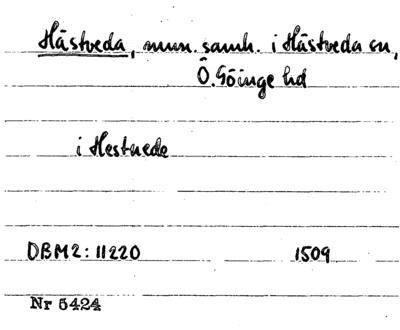 Hästveda, mun. samh. i Hästveda sn,
Ö. Göinge hd
i Hestuede
DBM2: 11220 1509
Nr 5424